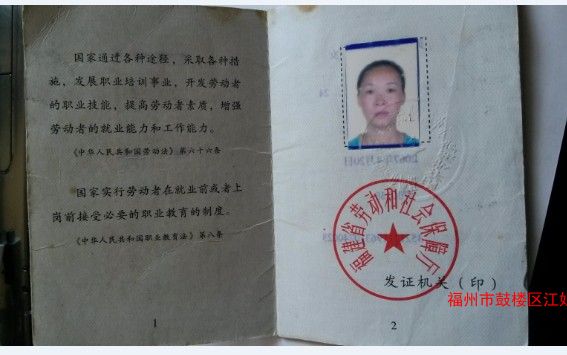 国家通过各种途径，采取各种措
施，发展职业培训事业，开发劳动者
的职业技能，提高劳动者素质，增强
劳动者的就业能力和工作能力。
《中华人民共和国劳动法》第六十六条
国家实行劳动者在就业前或者上
岗前接受必要的职业教育的制度。
《中华人民共和国职业教育法》第八条
1
福建省劳动和社会保障厅
发证机关（印）
福州市鼓楼区江
2